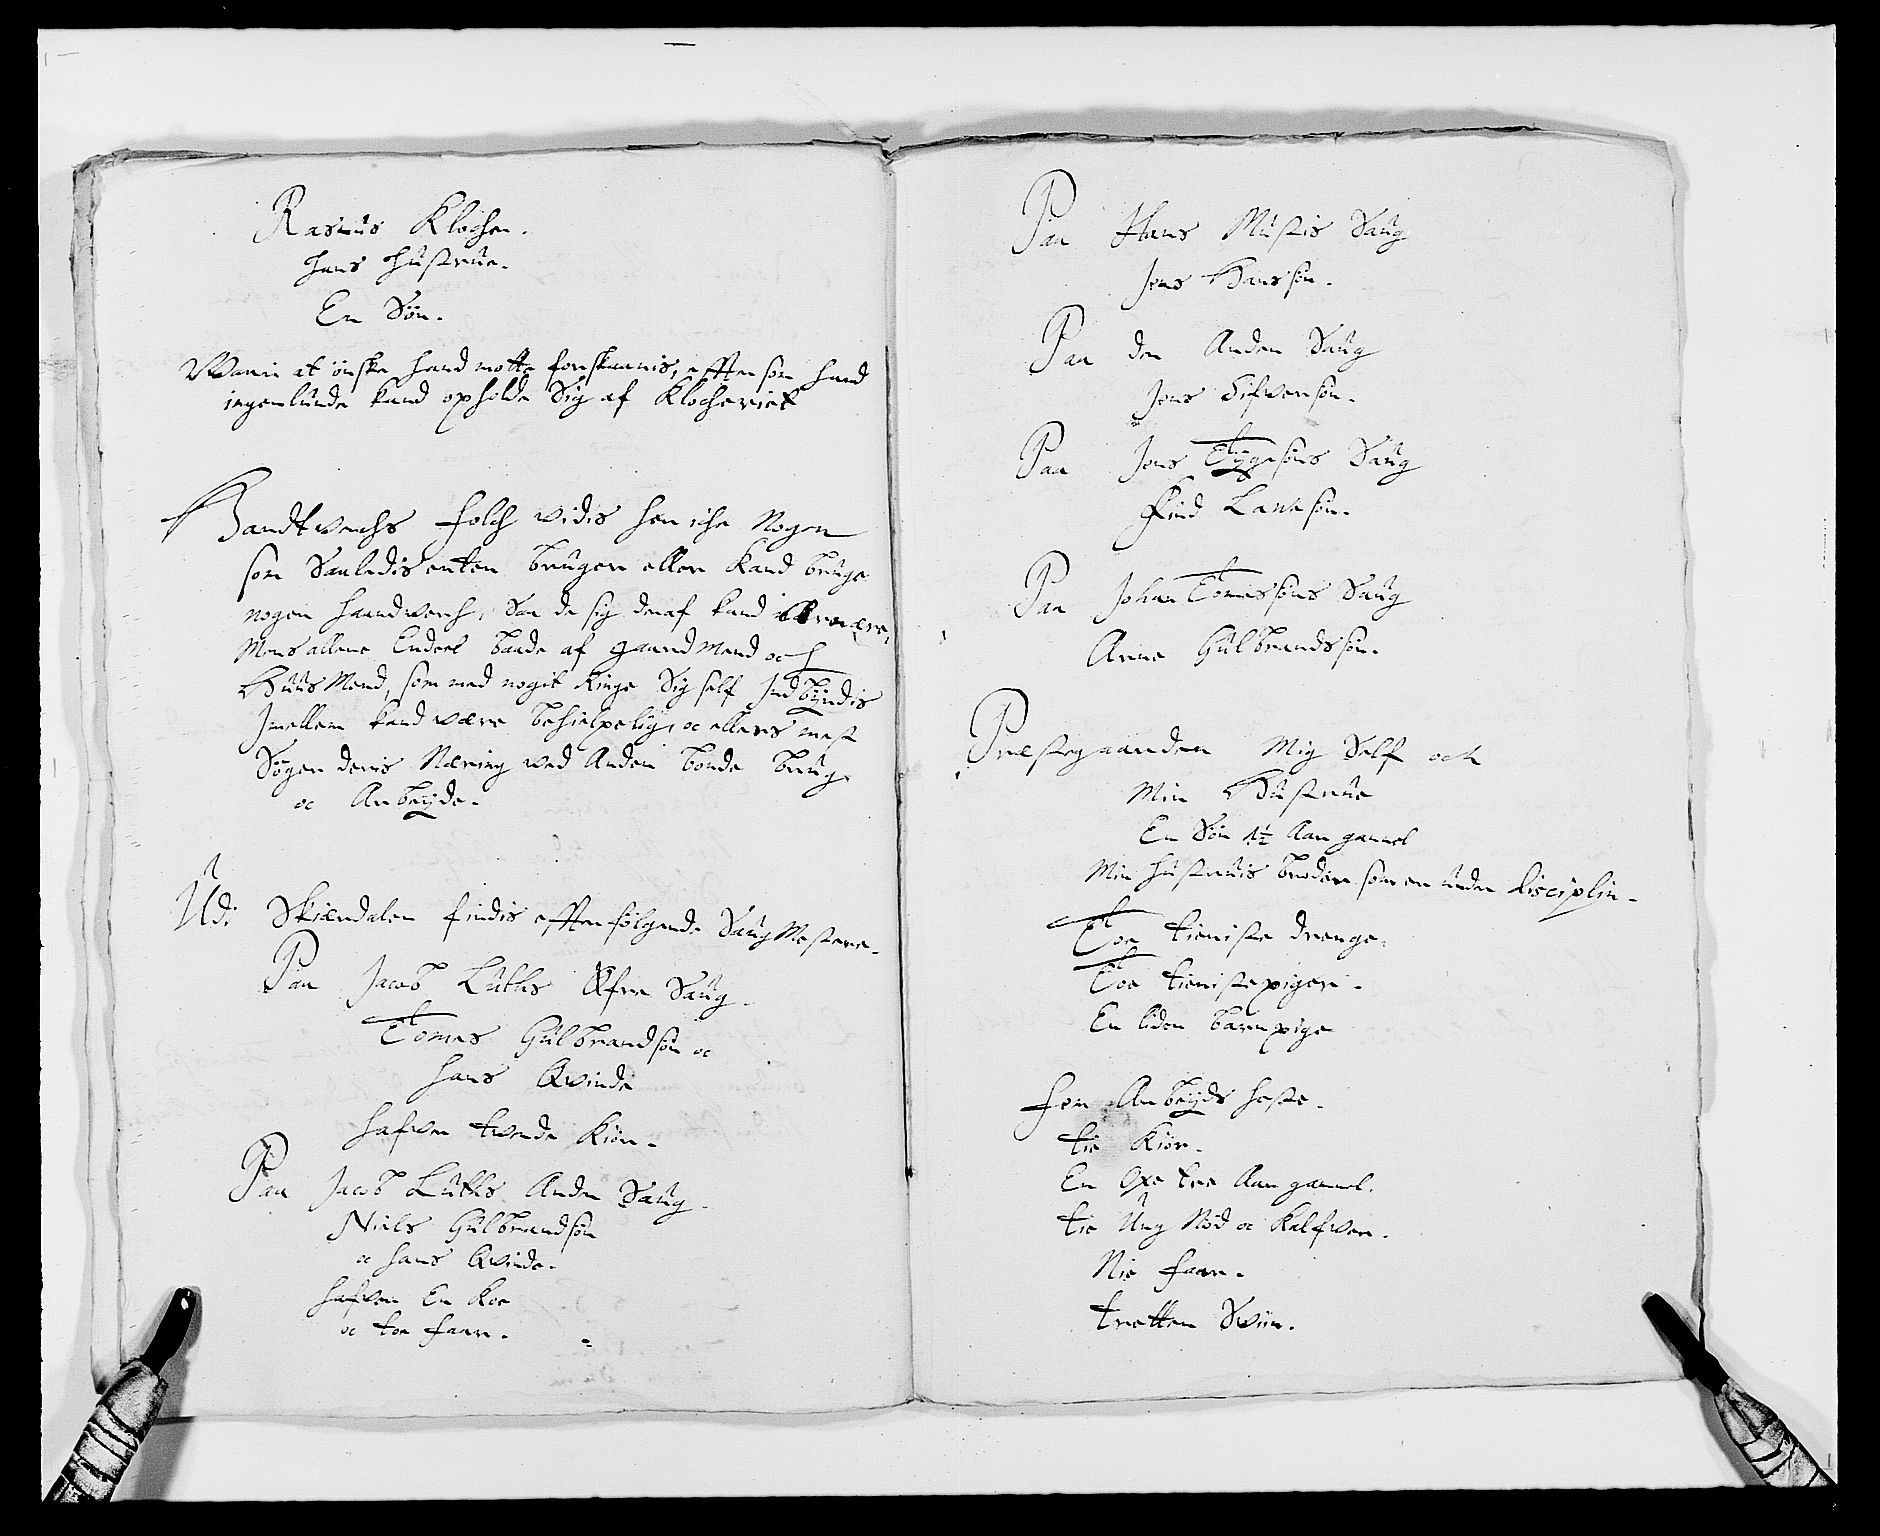 Rasmus Klocher.
hans Hustrue.
En Søn.
Waar at ønske hand motte forskaanis, efftersom hand
ingenlunde kand opholde Sig af Klocheriet
Handtverchs folch vidis her iche Nogen
som Saaledis enten bruger eller kand bruge
nogen haandverch, Saa de sig deraf kand
Mens allene Endeel baade af gaardmend och
Huusmend, som med nogit Ringe Sig self Indbyrdis
Imellem kand være behielpelig, oc ellers mest
Søger deris Næring ved Anden bonde brug
oc Arbeyde.
Udi Skierdalen findis effterfølgende Saug Mestere.
Paa Jacob Luths Øfre Saug.
Tomes Gulbrandsøn oc
hans Qvinde
hafver tvende Kiør.
Paa Jacob Luths Anden Saug.
Niels Gulbrandsøn
oc hans Qvinde.
hafver En Koe
oc toe faar.
Paa Hans Mustis Saug
Jens Hanssøn.
Paa den Anden Saug
Jens Sifversøn.
Paa Jens Tygesøns Saug
Find Larssøn.
Paa Johan Tomessøns Saug
Arne Gulbrandssøn.
Præstegaarden Mig Self och
Min Hustrue
En Søn 1½ Aar gammel
Min hustruis broder som er under disciplin.
Toe tieniste drenge.
Toe tienistepiger.
En liden barnpige
fem Arbeyds heste.
tie Kiør.
En Oxe tre Aar gammel.
tie Ung Nød oc Kalfver.
Nie faar.
tretten Sviin.